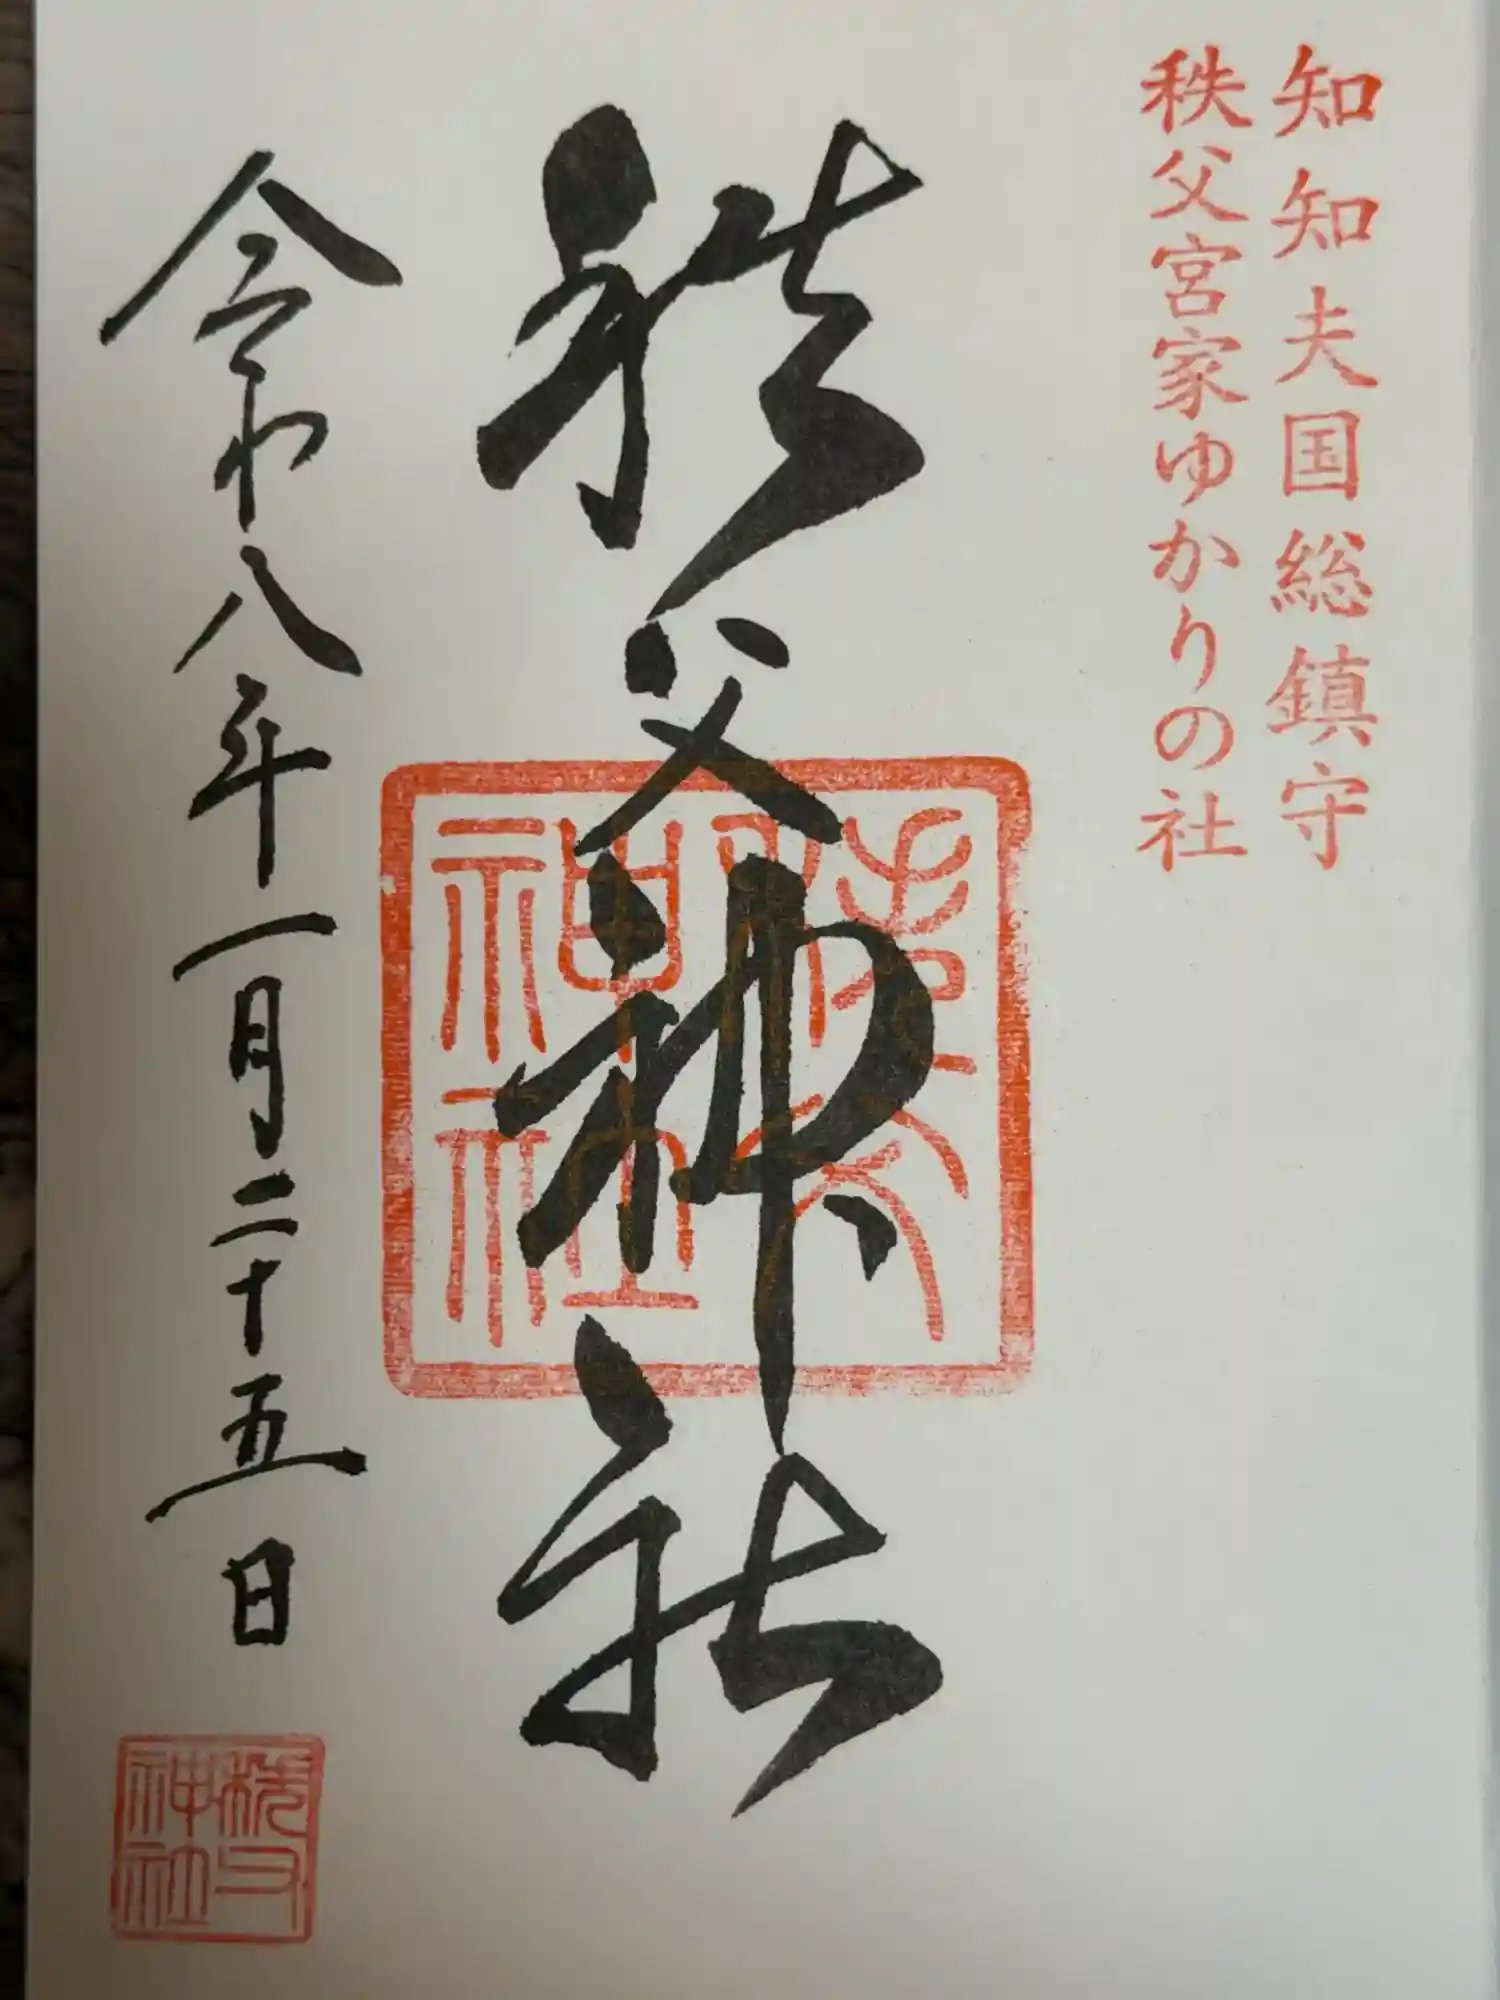 知知夫国総鎮守
秩父宮家ゆかりの社
秩父神社
秩父神社
令和八年一月二十五日
秩父神社